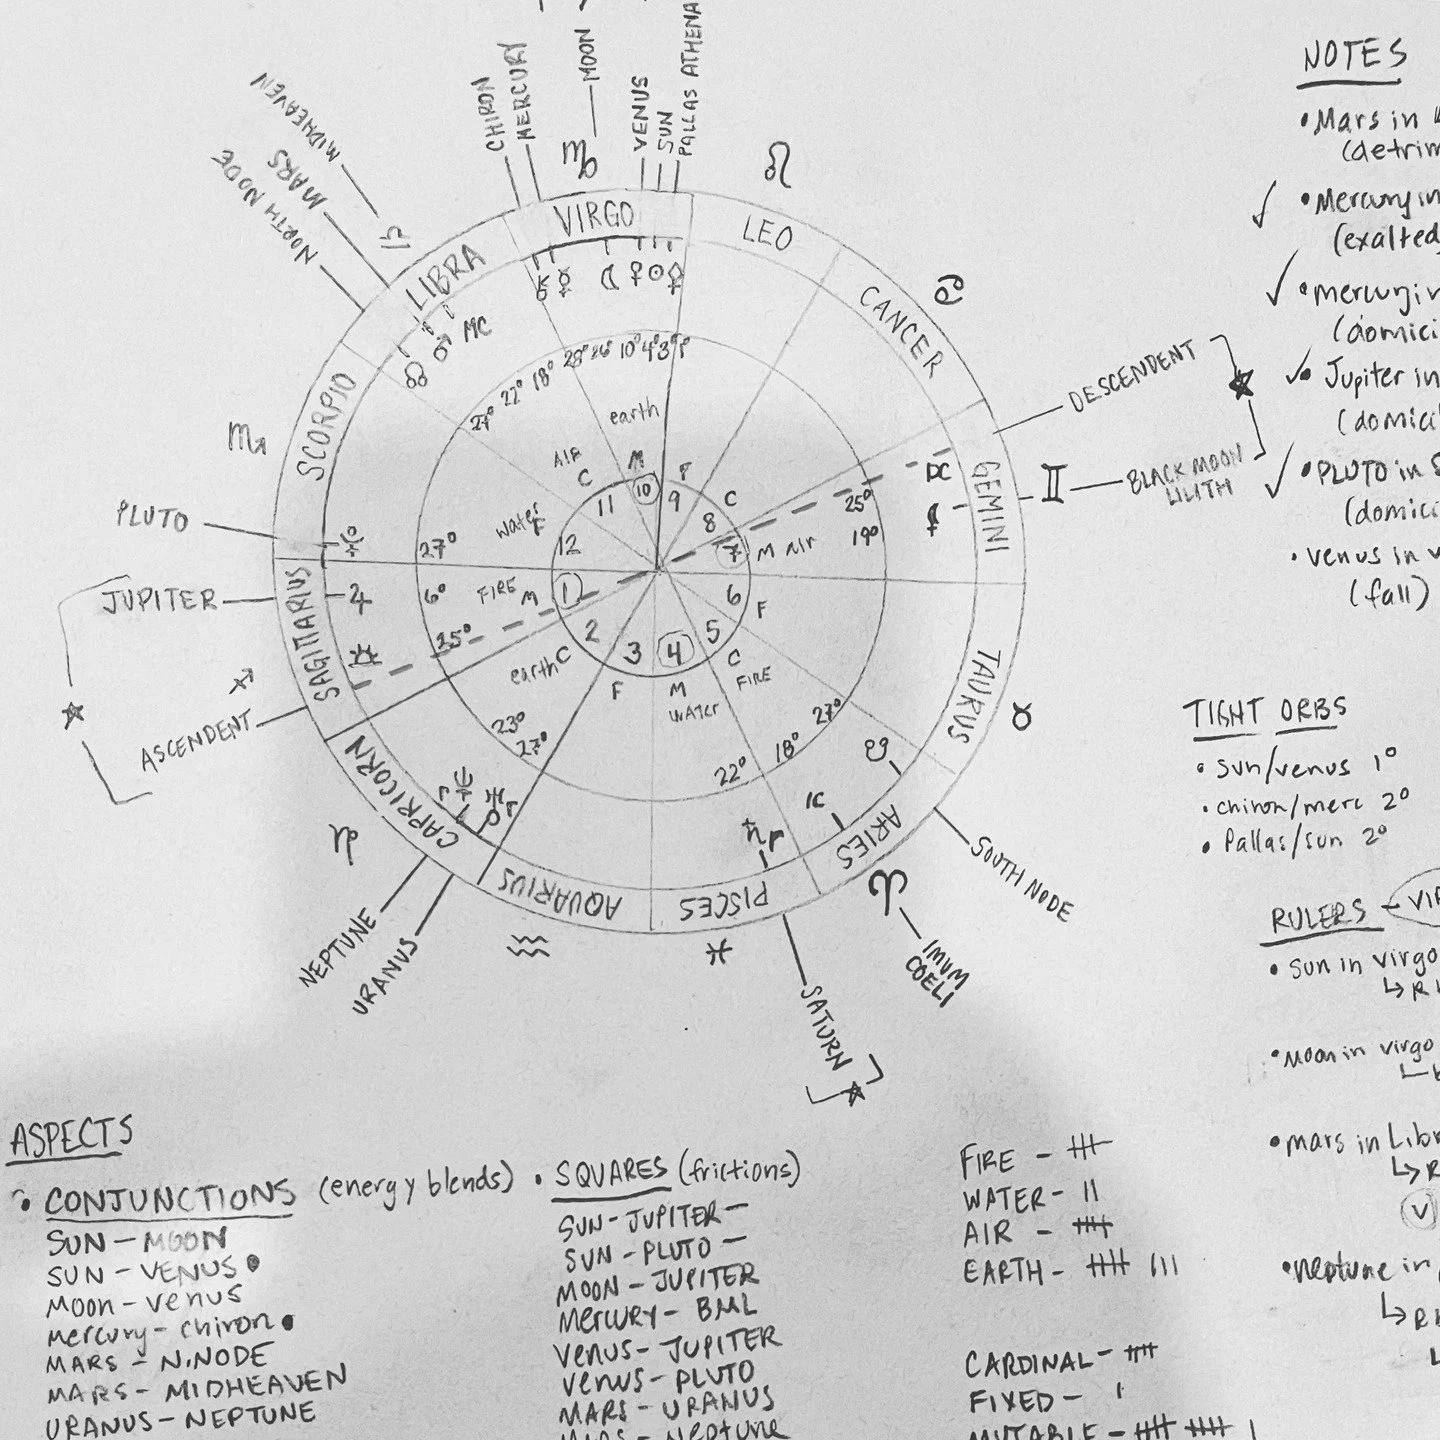 CHIRON
MERCURY
MOON
VENUS
SUN
PALLAS ATHENA
MIDHEAVEN
MARS
NORTH NODE
♍
♌
♎
♋
♏
♊
♐
♉
♑
♈
♒
♓
VIRGO
LEO
LIBRA
CANCER
SCORPIO
GEMINI
SAGITTARIUS
TAURUS
CAPRICORN
ARIES
AQUARIUS
PISCES
MC
DC
IC
27° 22° 18° 28° 26° 10° 4° 3° 1°
25°
19°
27°
6°
25°
23°
27°
22°
18°
27°
earth
AIR
C
M
F
C
water
F
FIRE M
M AIR
F
earth C
F
M
WATER
C
FIRE
11 10 9
12 8
1 7
2 6
3 4 5
PLUTO
JUPITER
ASCENDENT
DESCENDENT
BLACK MOON
LILITH
NEPTUNE
URANUS
SATURN
IMUM
COELI
SOUTH NODE
NOTES
• Mars in
• Mercury in
(exalted)
• mercury in
• Jupiter in
• PLUTO in
• Venus in
(fall)
TIGHT ORBS
• sun/venus 1°
• chiron/merc 2°
• Pallas/sun 2°
RULERS –
• sun in virgo
• moon in virgo
• mars in
V
• neptune in
ASPECTS
• CONJUNCTIONS (energy blends)
SUN – MOON
SUN – VENUS •
MOON – Venus
mercury – chiron •
MARS – N.NODE
MARS – MIDHEAVEN
URANUS – NEPTUNE
• SQUARES (frictions)
SUN – JUPITER –
SUN – PLUTO –
MOON – JUPITER
Mercury – BML
Venus – JUPITER
Venus – PLUTO
MARS – URANUS
Neptune
FIRE –
WATER – II
AIR –
EARTH –
CARDINAL –
FIXED – I
MUTABLE –